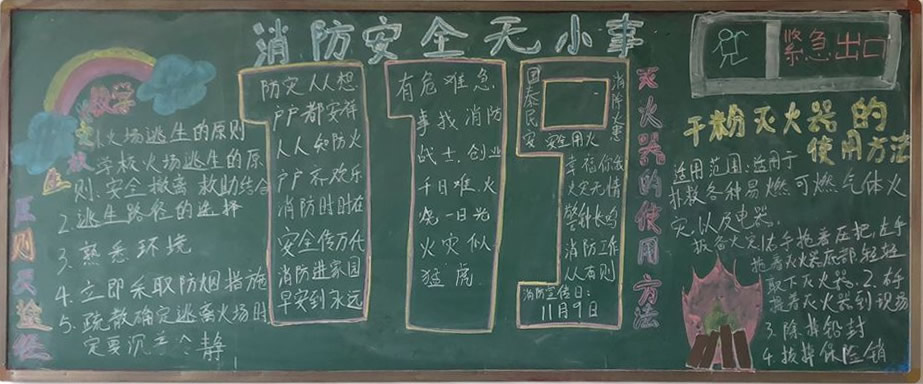 消防安全无小事
紧急出口
火场逃生的原则
学校火场逃生的原
则:安全撤离 救助结合
2.逃生路径的选择
3.熟悉环境
4.立即采取防烟措施
5.疏散确定逃离火场时
定要沉 冷静
防灾人人想
户户都安祥
人人知防火
户户齐欢乐
消防时时在
安全传万代
消防进家园
早安到永远
有危难急
事找消防
战士,创业
千日难,火
烧一日光
火灾似
猛虎
国泰民安
消除火患
安全用火
幸福你我
火灾无情
警钟长鸣
消防工作
人人有则
消防宣传日:
11月9日
灭火器的使用方法
干粉灭火器的
使用方法
适用范围:适用于
扑救各种易燃可燃气体火
灾以及电器
扳各火灾:1.右手拖着压把,左手
拖着灭火器底部,轻轻
取下灭火器.2.右手
提着灭火器到现场
3.除掉铅封
4.拔掉保险销